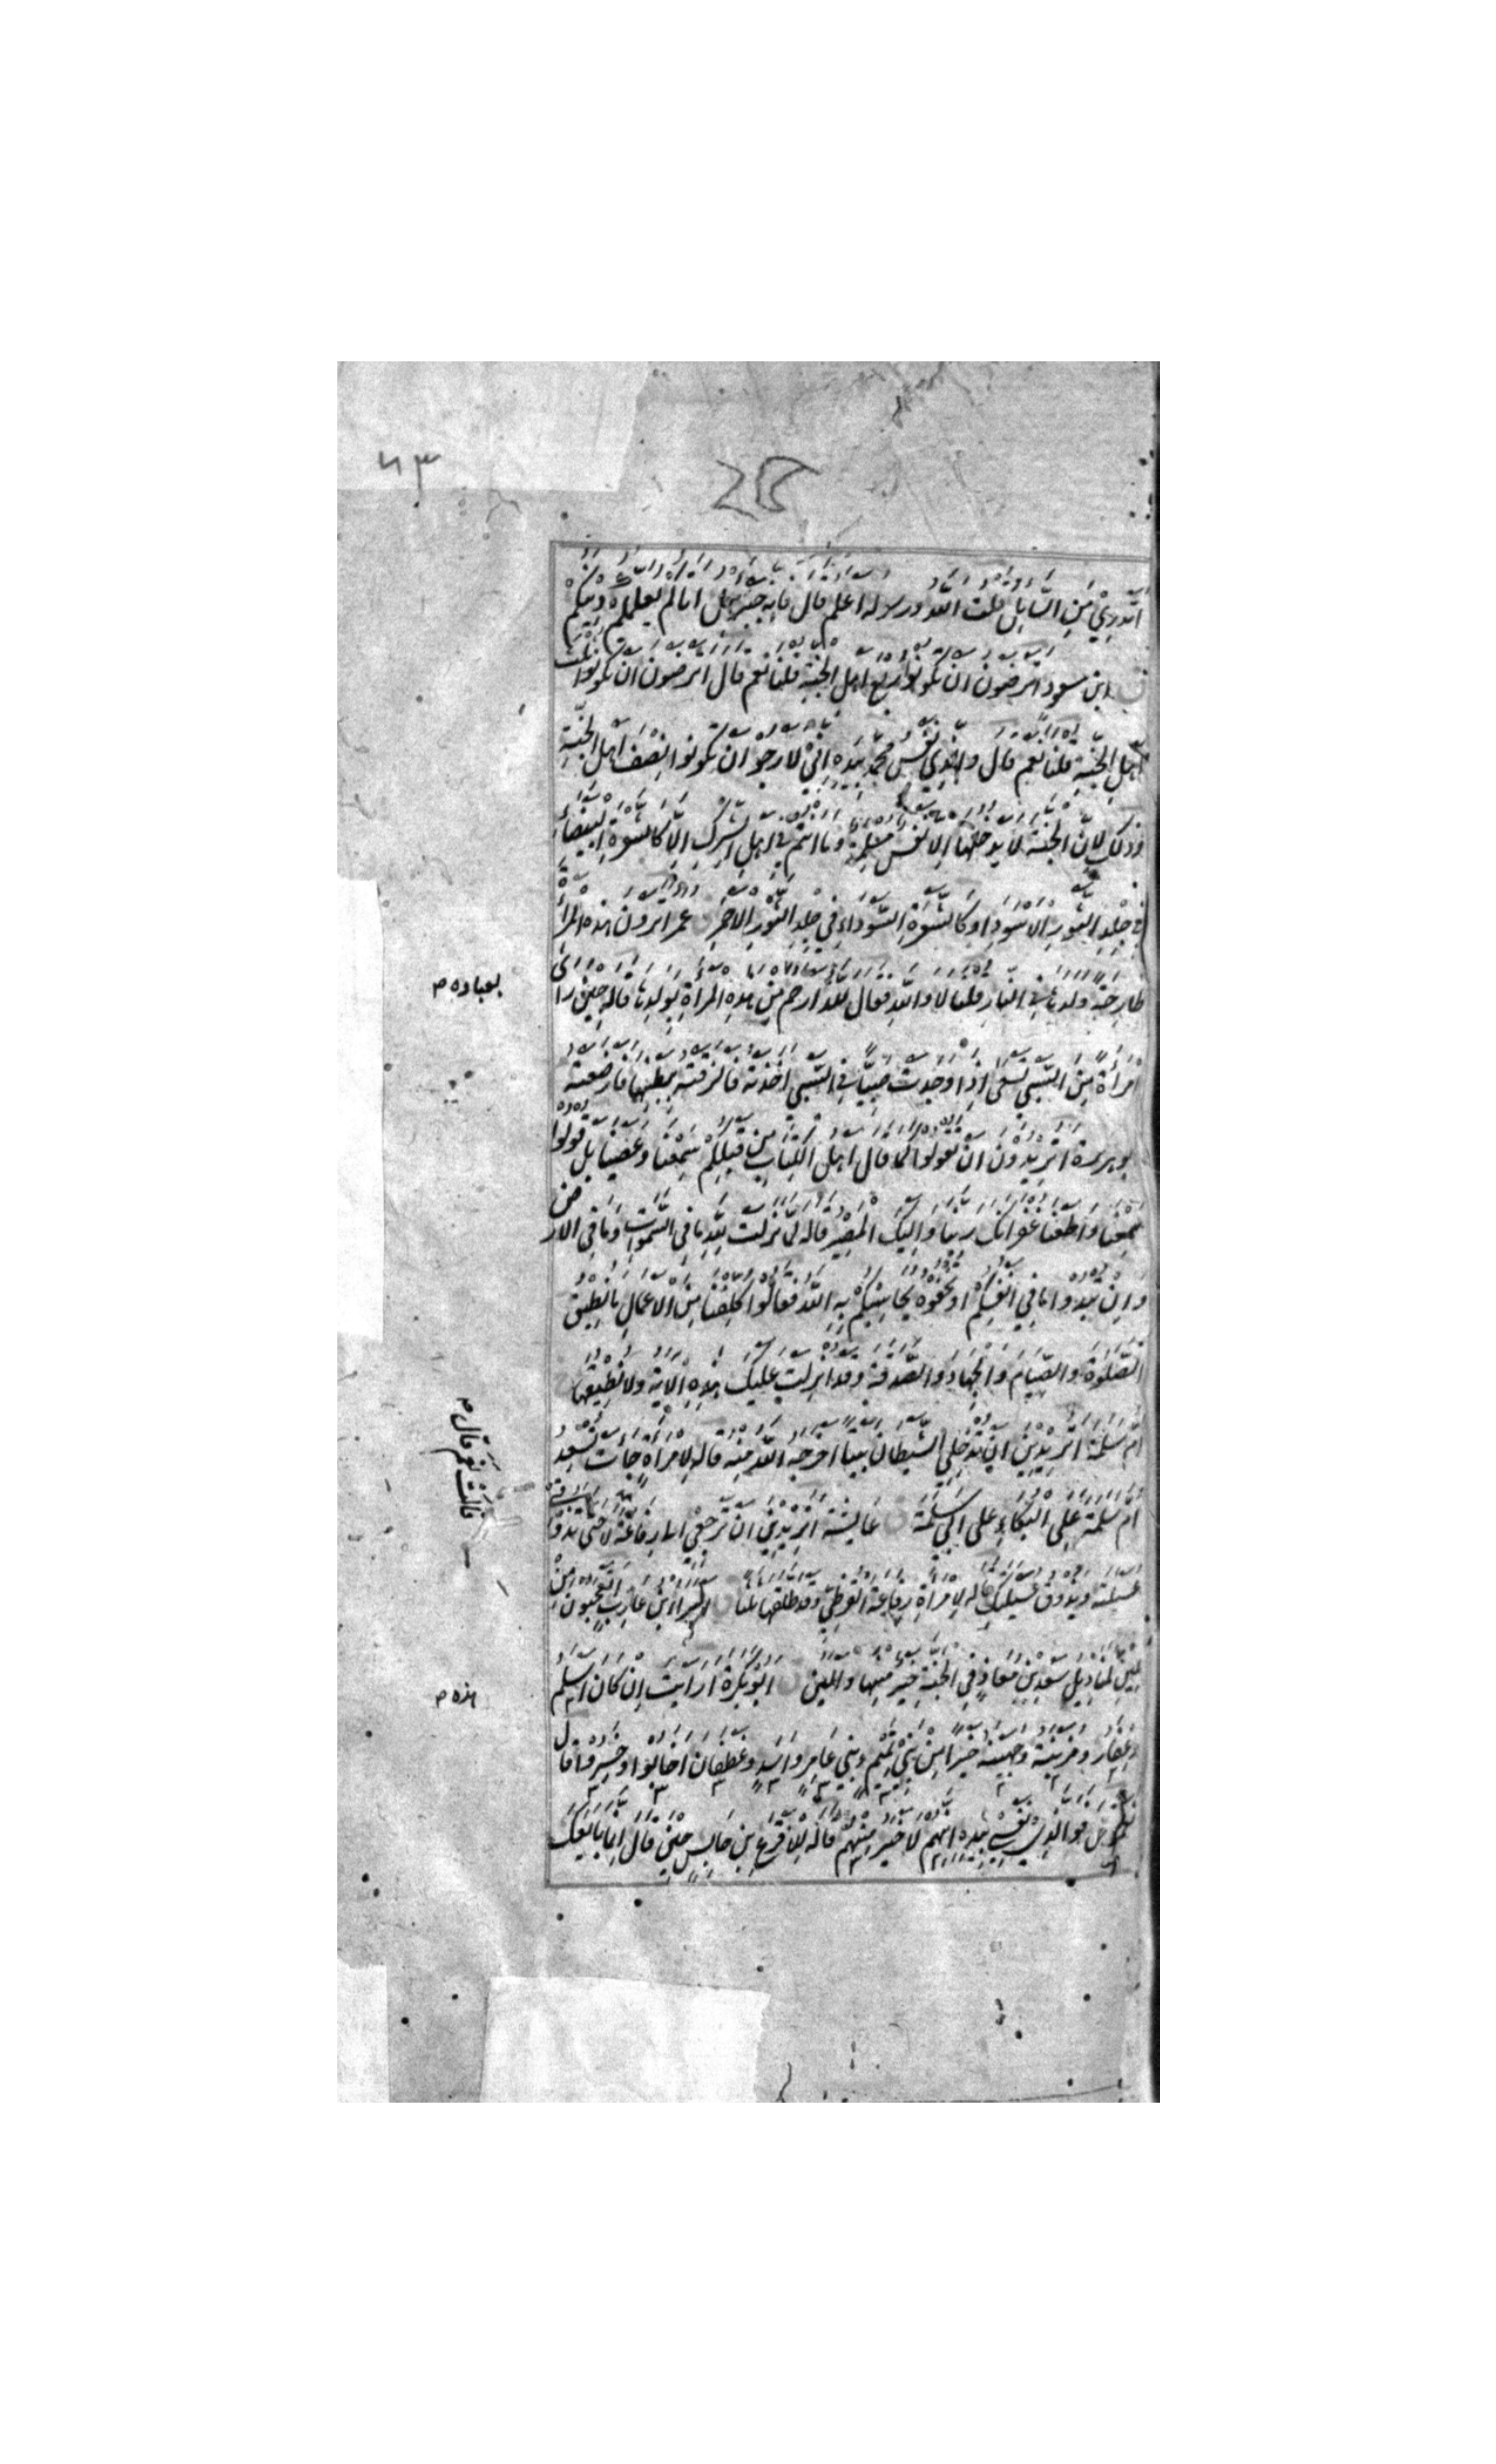 ۶۳
اَتَدرِي مَنِ السَّائِلُ قلت اللّه ورسوله اعلم قال فانه جبرئيل اتاكم يعلمكم دينكم
ق ابن مسعود اترضون ان تكونوا ربع اهل الجنة قلنا نعم قال اترضون ان تكونوا ثلث
اهل الجنة قلنا نعم قال والذي نفس محمد بيده اني لارجو ان تكونوا نصف اهل الجنة
وذلك لان الجنة لا يدخلها الا نفس مسلمة وما انتم في اهل الشرك الا كالشعرة البيضاء
في جلد الثور الاسود او كالشعرة السوداء في جلد الثور الاحمر ق عمر اترون هذه المرأة
طارحة ولدها في النار قلنا لا والله فقال لله ارحم من هذه المرأة بولدها قاله حين رأى
بعباده م
امرأة من السبي تسعى اذا وجدت صبيا في السبي اخذته فالزقته ببطنها فارضعته
ابو هريرة اتريدون ان تقولوا كما قال اهل الكتاب من قبلكم سمعنا وعصينا بل قولوا
سمعنا واطعنا غفرانك ربنا واليك المصير قاله لما نزلت لله ما في السموات وما في الارض
وان تبدوا ما في انفسكم او تخفوه يحاسبكم به الله فقالوا كلفنا من الاعمال ما نطيق
الصلوة والصيام والجهاد والصدقة وقد انزلت عليك هذه الاية ولا نطيقها
ام سلمة اتريدين ان تدخلي الشيطان بيتا اخرجه الله منه قاله لامرأة جات تسعد
ام سلمة على البكاء على ابي سلمة ق عايشة اتريدين ان ترجعي الى رفاعة لا حتى تذوقي
قالت نعم قال م
عسيلته ويذوق عسيلتك قاله لامرأة رفاعة القرظي وقد طلقها ثلثا ق البراء ابن عازب اتعجبون من
لين لمناديل سعد بن معاذ في الجنة خير منها والين ق ابو بكرة ارايت ان كان اسلم
هذه م
وغفار ومزينة وجهينة خيرا من بني تميم وبني عامر واسد وغطفان اخابوا وخسروا قال
نعم قال فوالذي نفسي بيده انهم لاخير منهم قاله للاقرع بن حابس حين قال انما بايعك